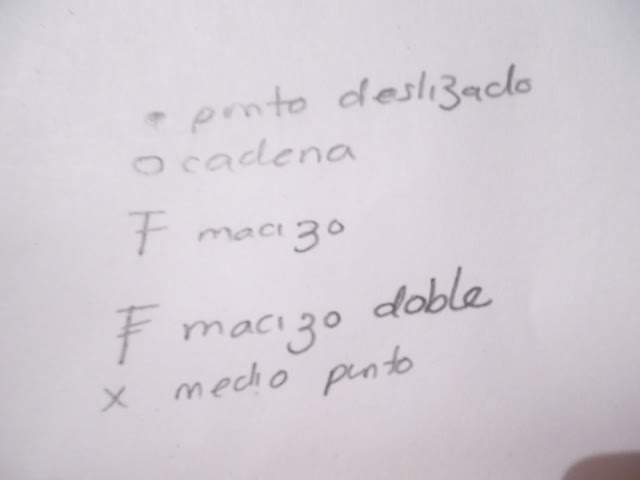 • punto deslizado
o cadena
Ŧ macizo
Ŧ macizo doble
x medio punto